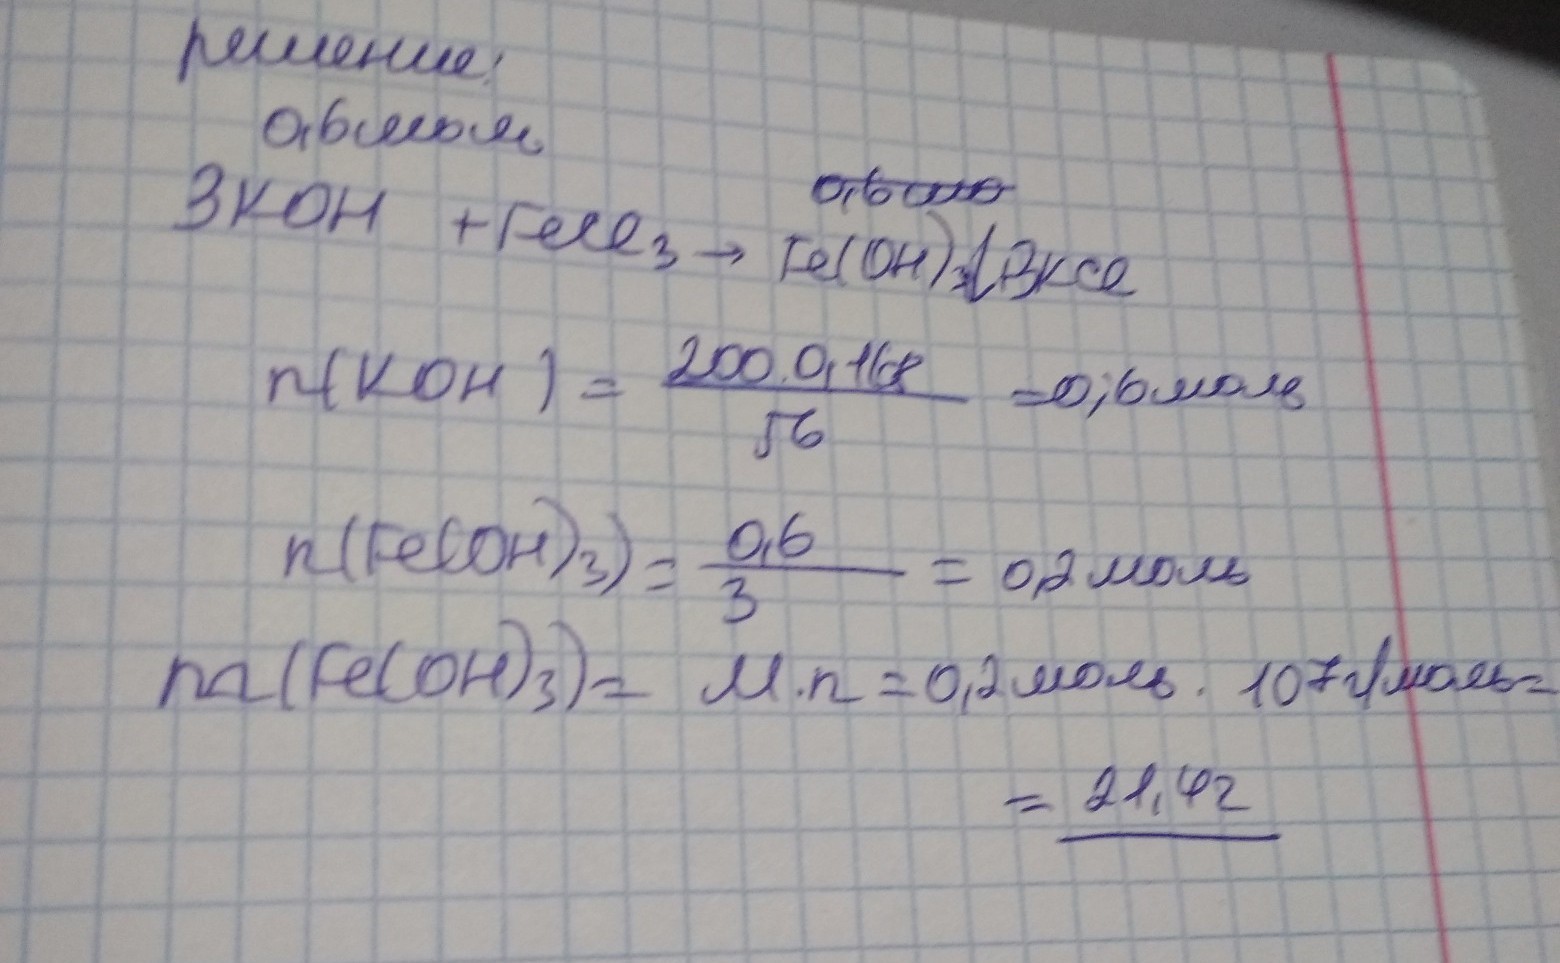 решение:
0,6 моль
0,6 моль
3KOH + FeCl₃ → Fe(OH)₃↓ 3KCl
n(KOH) = 200·0,168 / 56 = 0,6 моль
n(Fe(OH)₃) = 0,6 / 3 = 0,2 моль
m(Fe(OH)₃) = M·n = 0,2 моль · 107 г/моль =
= 21,4 г